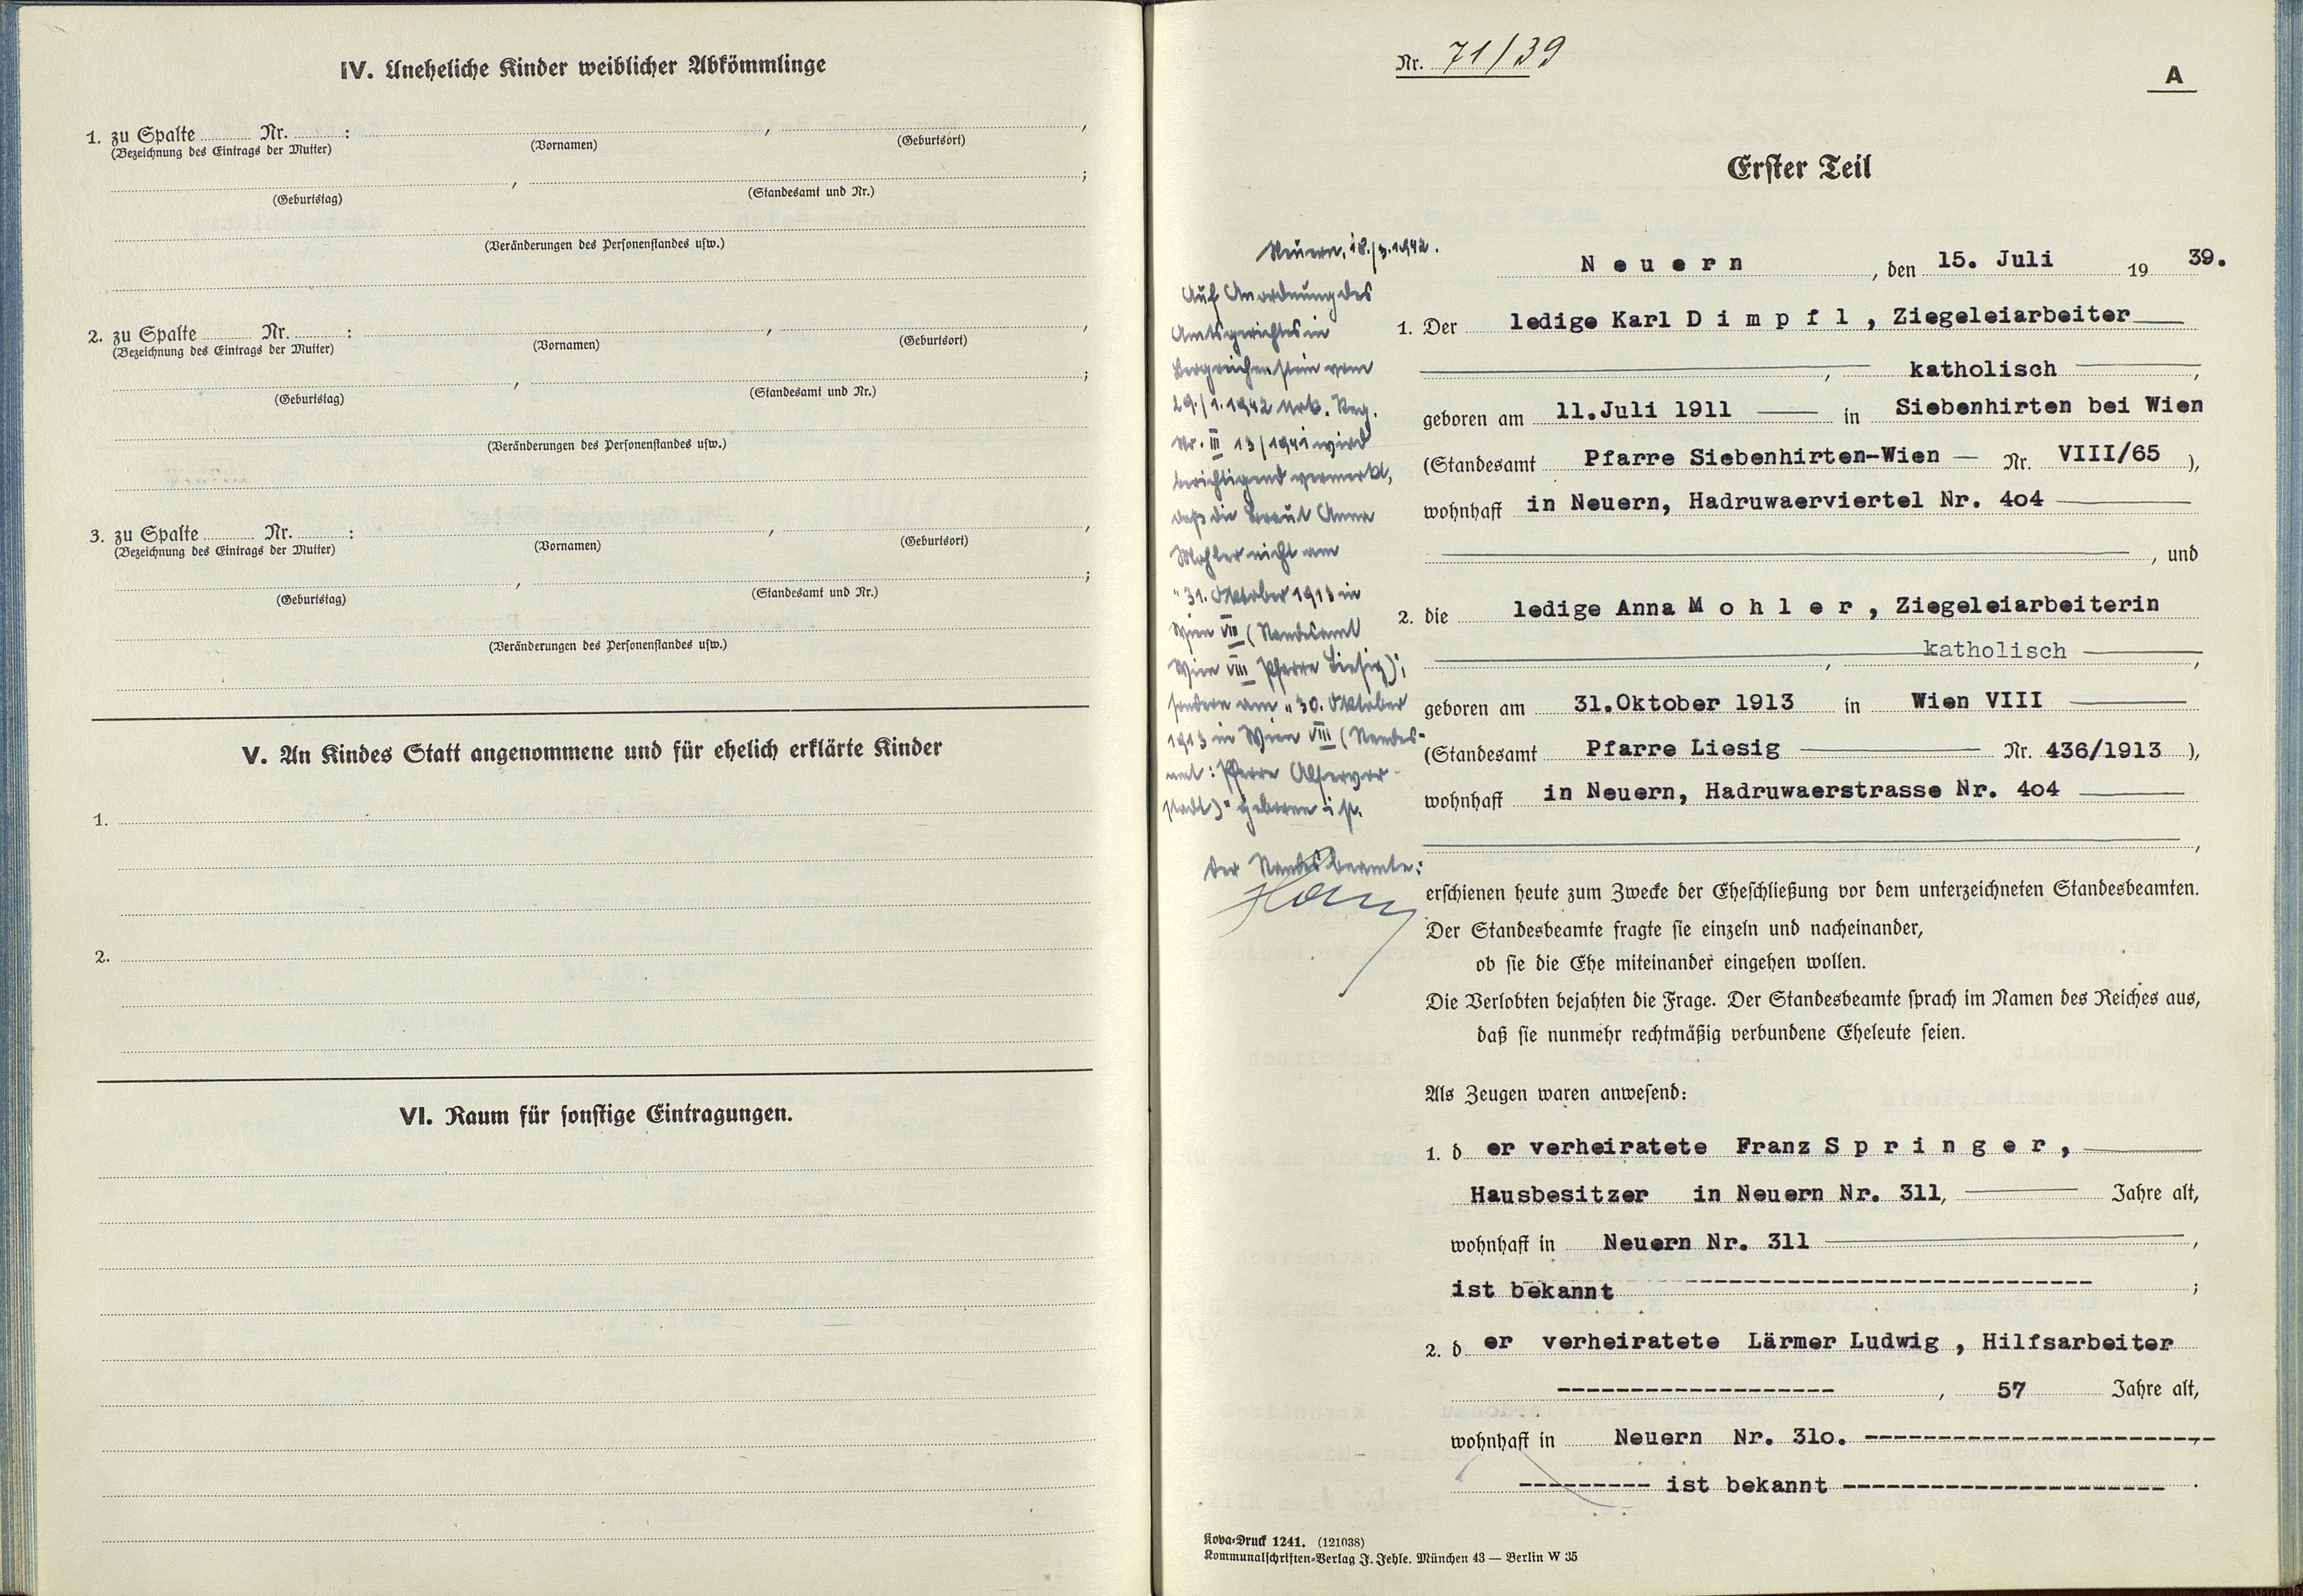 IV. Uneheliche Kinder weiblicher Abkömmlinge
1. zu Spalte ........ Nr. ........ : ........ , ........ ,
(Bezeichnung des Eintrags der Mutter) (Vornamen) (Geburtsort)
........ , ........ ;
(Geburtstag) (Standesamt und Nr.)
(Veränderungen des Personenstandes usw.)
2. zu Spalte ........ Nr. ........ : ........ , ........ ,
(Bezeichnung des Eintrags der Mutter) (Vornamen) (Geburtsort)
........ , ........ ;
(Geburtstag) (Standesamt und Nr.)
(Veränderungen des Personenstandes usw.)
3. zu Spalte ........ Nr. ........ : ........ , ........ ,
(Bezeichnung des Eintrags der Mutter) (Vornamen) (Geburtsort)
........ , ........ ;
(Geburtstag) (Standesamt und Nr.)
(Veränderungen des Personenstandes usw.)
V. An Kindes Statt angenommene und für ehelich erklärte Kinder
1.
2.
VI. Raum für sonstige Eintragungen.
Nr. 71/39
A
Erster Teil
Neuern, 18./3.1942.
Auf Anordnung des
Amtsgerichtes in
Bergreichenstein vom
29./1.1942 Urk. Reg.
Nr. III 13/1941 wird
berichtigend vermerkt,
daß die Braut Anna
Mohler nicht am
"31. Oktober 1913 in
Wien VIII (Standesamt
Wien VIII Pfarre Liesig)",
sondern am "30. Oktober
1913 in Wien VIII (Standes-
amt: Pfarre Alservor-
stadt)" geboren ist.
Der Standesbeamte:
N e u e r n , den 15. Juli 19 39.
1. Der ledige Karl D i m p f l , Ziegeleiarbeiter
, katholisch ,
geboren am 11.Juli 1911 — in Siebenhirten bei Wien
(Standesamt Pfarre Siebenhirten-Wien — Nr. VIII/65 ),
wohnhaft in Neuern, Hadruwaerviertel Nr. 4o4
, und
2. die ledige Anna M o h l e r , Ziegeleiarbeiterin
, katholisch ,
geboren am 31.Oktober 1913 in Wien VIII
(Standesamt Pfarre Liesig — Nr. 436/1913 ),
wohnhaft in Neuern, Hadruwaerstrasse Nr. 4o4
,
erschienen heute zum Zwecke der Eheschließung vor dem unterzeichneten Standesbeamten.
Der Standesbeamte fragte sie einzeln und nacheinander,
ob sie die Ehe miteinander eingehen wollen.
Die Verlobten bejahten die Frage. Der Standesbeamte sprach im Namen des Reiches aus,
daß sie nunmehr rechtmäßig verbundene Eheleute seien.
Als Zeugen waren anwesend:
1. d er verheiratete Franz S p r i n g e r ,
Hausbesitzer in Neuern Nr. 311, — Jahre alt,
wohnhaft in Neuern Nr. 311 ,
ist bekannt ;
2. d er verheiratete Lärmer Ludwig , Hilfsarbeiter
, 57 Jahre alt,
wohnhaft in Neuern Nr. 31o. ,
ist bekannt .
Kova-Druck 1241. (121038)
Kommunalschriften-Verlag J. Jehle. München 43 — Berlin W 35